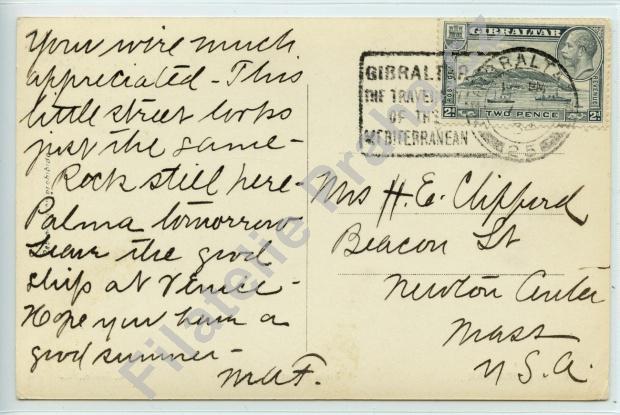 Your wire much
appreciated - This
little street looks
just the same -
Rock still here -
Palma tomorrow
Leave the good
ship at Venice -
Hope you have a
good summer -
MAF.
GIBRALTAR
POSTAGE
REVENUE
2d
TWO PENCE
2d
GIBRALTAR
THE TRAVEL
OF THE
MEDITERRANEAN
GIBRALTA
Mrs H. E. Clifford
Beacon St
Newton Center
Mass
U.S.A.
Filatelie Praha